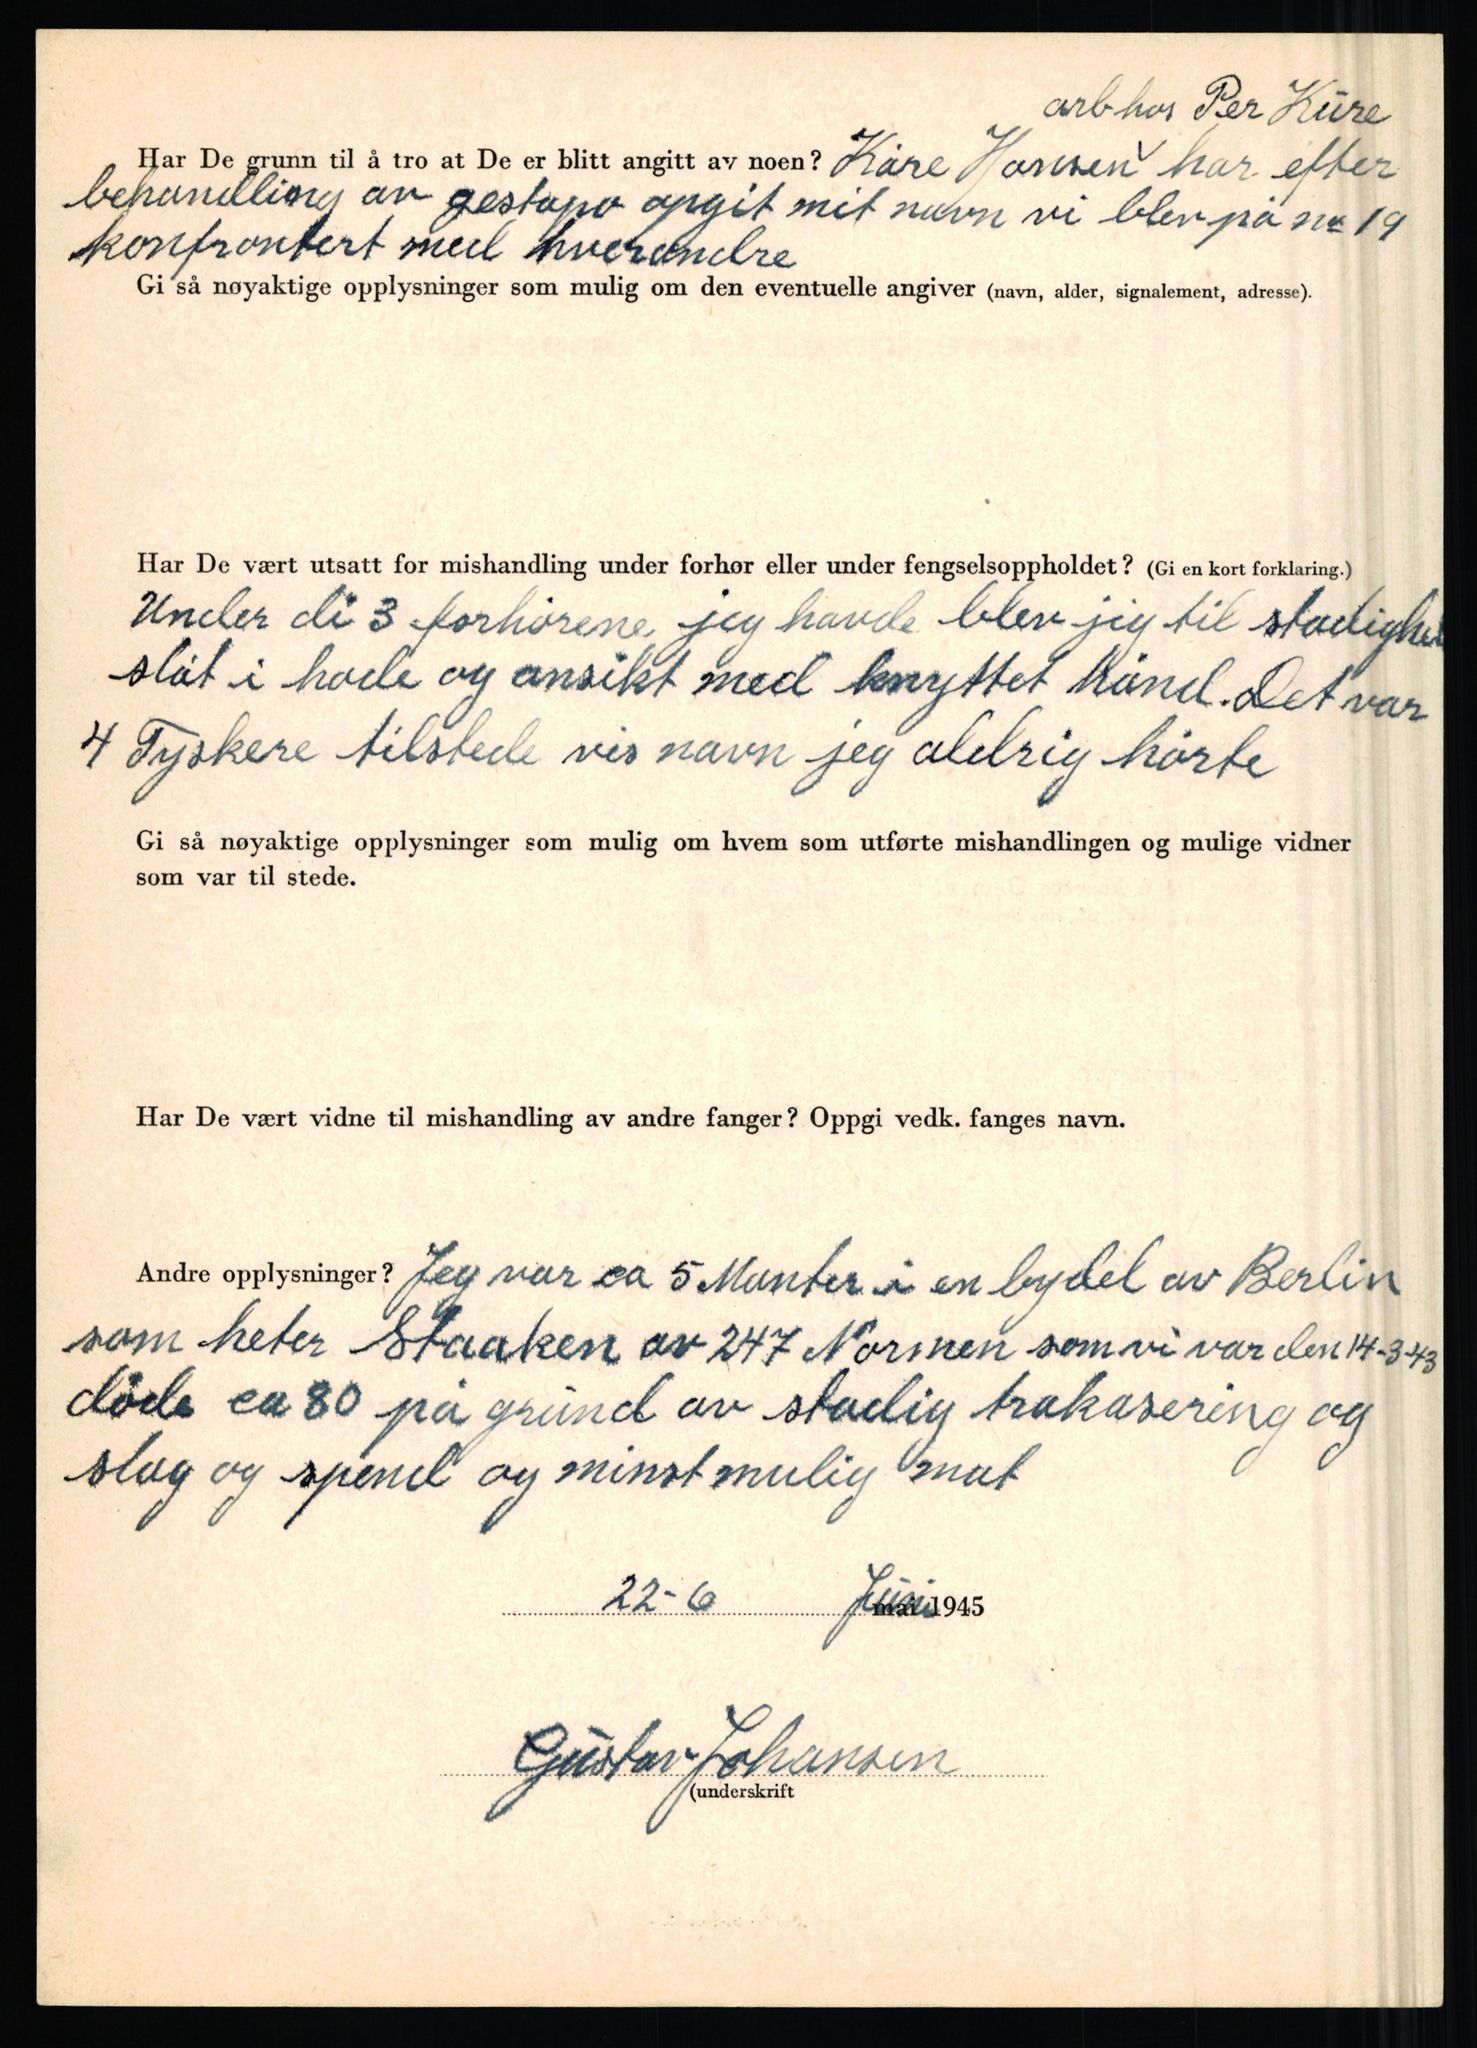 arb hos Per Küre
Har De grunn til å tro at De er blitt angitt av noen? Kåre Hansen har efter
behandling av gestapo opgit mit navn vi blev på nr 19
konfrontert med hverandre
Gi så nøyaktige opplysninger som mulig om den eventuelle angiver (navn, alder, signalement, adresse).
Har De vært utsatt for mishandling under forhør eller under fengselsoppholdet? (Gi en kort forklaring.)
Under di 3 forhörene jeg havde blev jeg til stadighed
slåt i hode og ansikt med knyttet hånd. Det var
4 Tyskere tilstede vis navn jeg aldrig hörte
Gi så nøyaktige opplysninger som mulig om hvem som utførte mishandlingen og mulige vidner
som var til stede.
Har De vært vidne til mishandling av andre fanger? Oppgi vedk. fanges navn.
Andre opplysninger? Jeg var ca 5 Manter i en bydel av Berlin
som heter Staaken av 247 Normen som vi var den 14-3-43
döde ca 80 på gründ av stadig trakasering og
slag og spend og minst mulig mat
22-6 Jüni mai 1945
Güstav Johansen
(underskrift